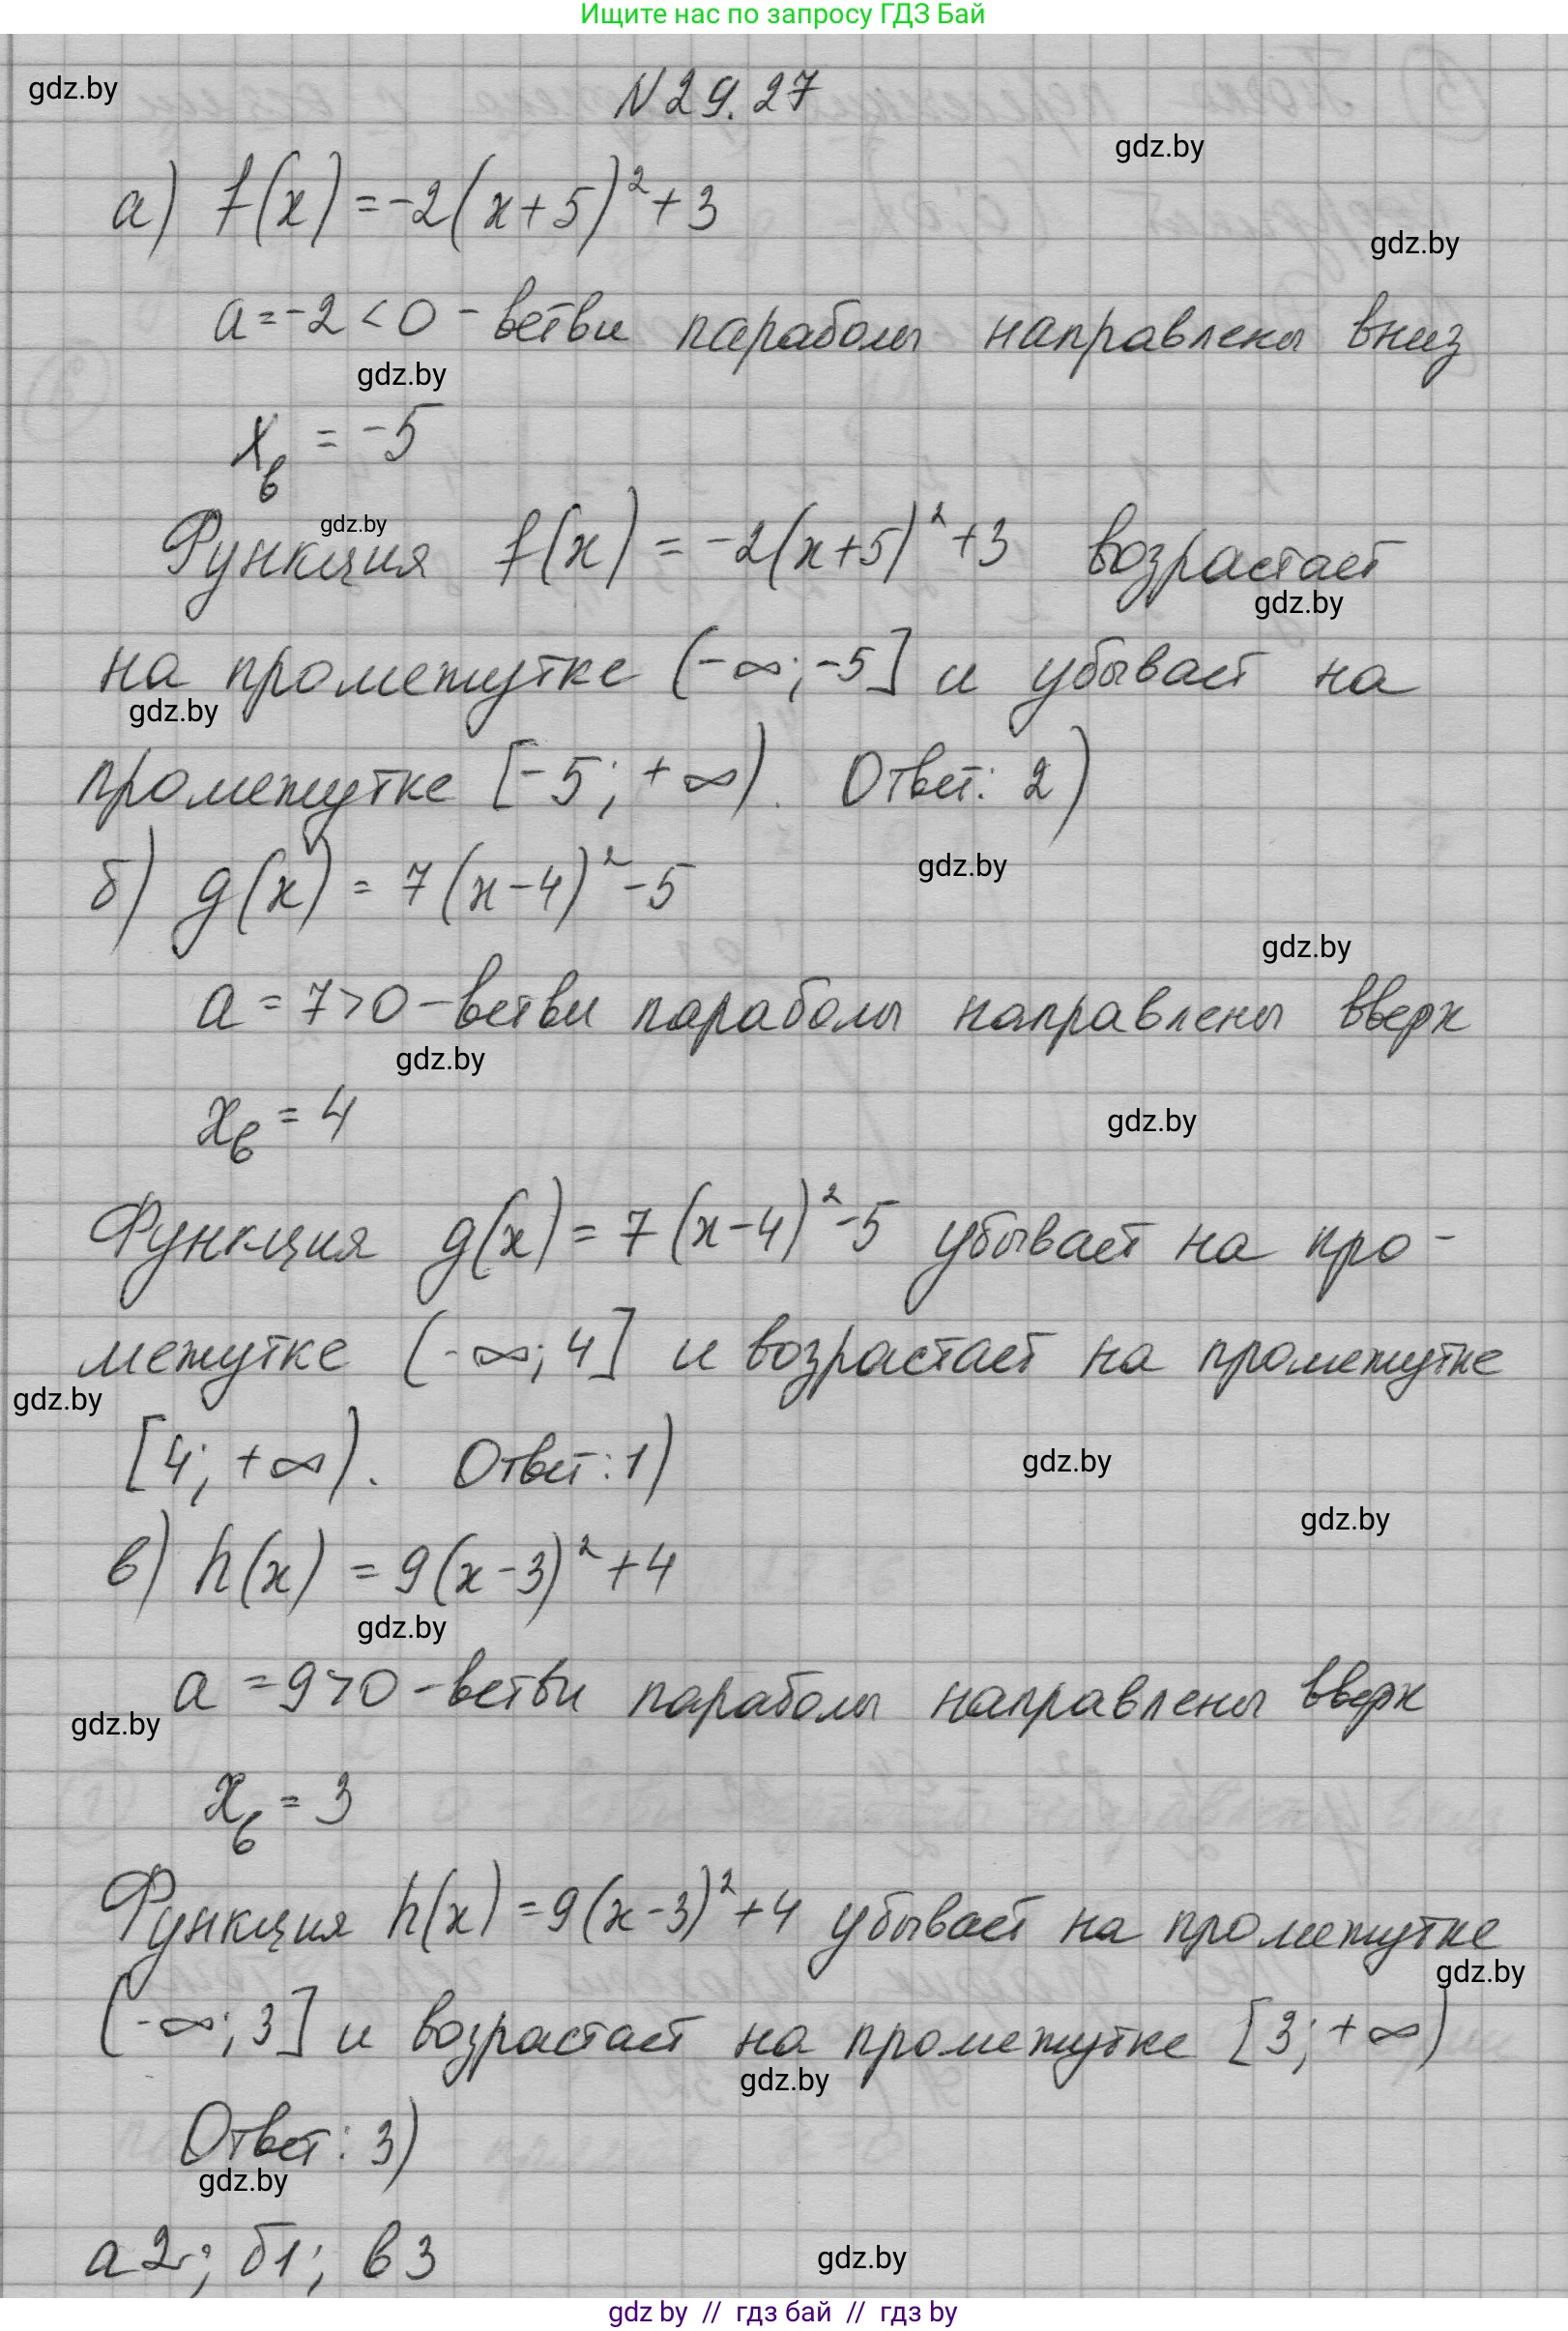 Ищите нас по запросу ГДЗ Бай
gdz.by
N29.27
gdz.by
а) f(x) = -2(x+5)² + 3
gdz.by
a = -2 < 0 - ветви параболы направлены вниз
gdz.by
xв = -5
gdz.by
Функция f(x) = -2(x+5)² + 3 возрастает
gdz.by
на промежутке (-∞; -5] и убывает на
gdz.by
промежутке [-5; +∞). Ответ: 2)
gdz.by
б) g(x) = 7(x-4)² - 5
gdz.by
a = 7 > 0 - ветви параболы направлены вверх
gdz.by
xв = 4
gdz.by
Функция g(x) = 7(x-4)² - 5 убывает на про-
межутке (-∞; 4] и возрастает на промежутке
gdz.by
[4; +∞). Ответ: 1)
gdz.by
gdz.by
в) h(x) = 9(x-3)² + 4
gdz.by
a = 9 > 0 - ветви параболы направлены вверх
gdz.by
xв = 3
Функция h(x) = 9(x-3)² + 4 убывает на промежутке
gdz.by
(-∞; 3] и возрастает на промежутке [3; +∞)
gdz.by
Ответ: 3)
gdz.by
а2; б1; в3
gdz.by
gdz by // гдз бай // гдз by